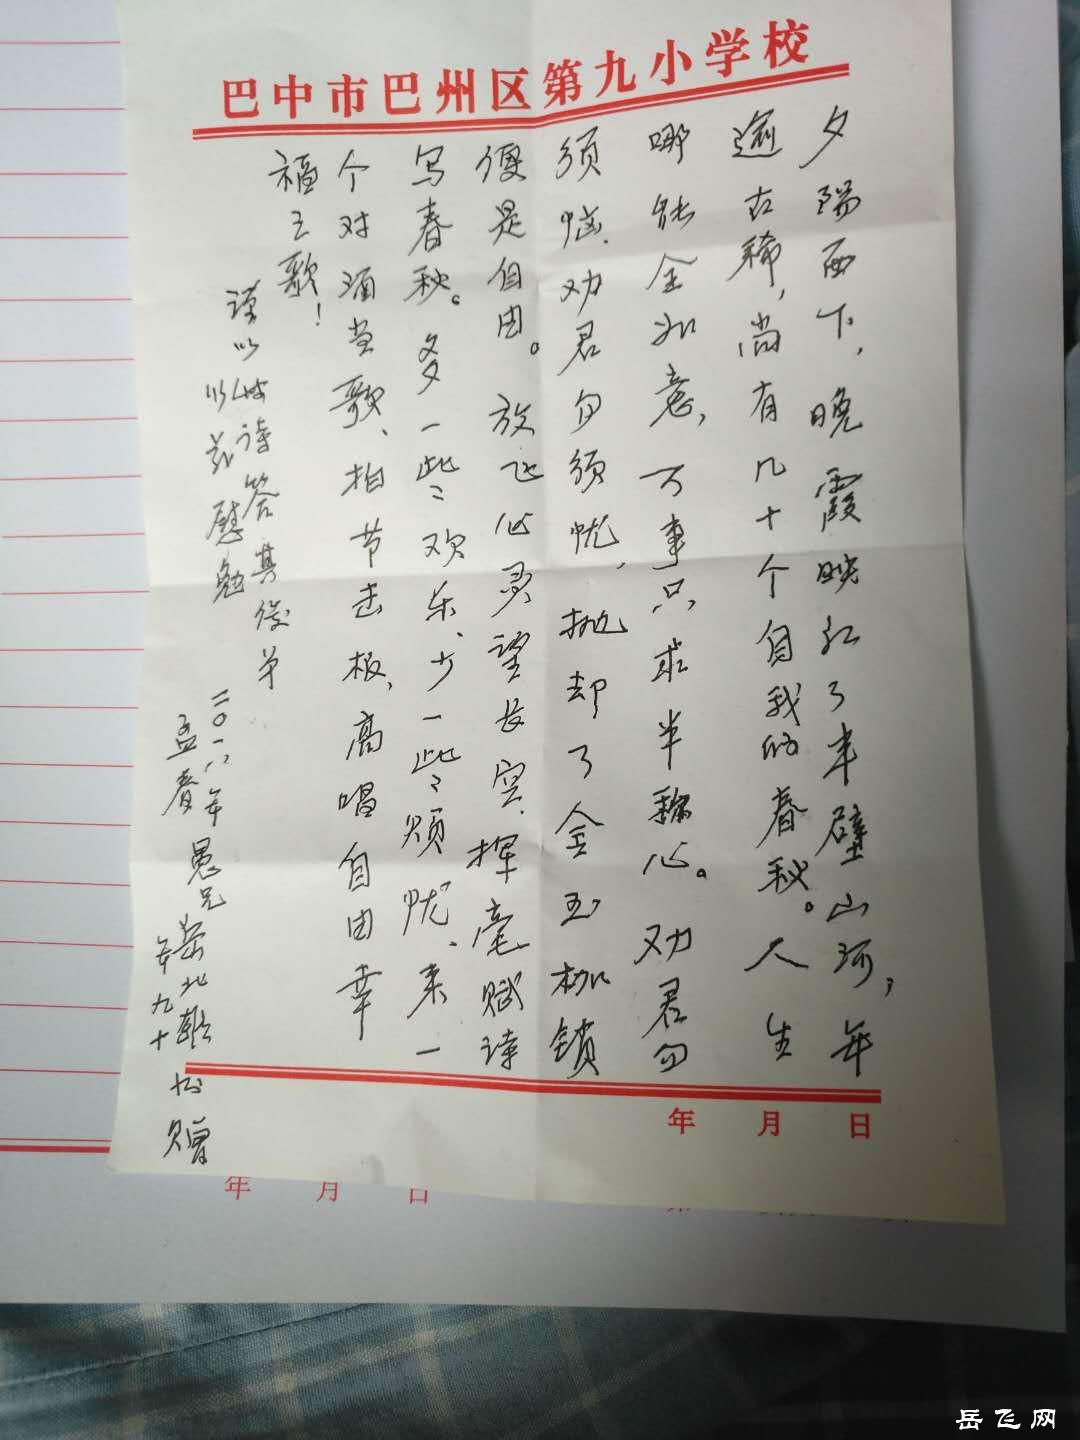 巴中市巴州区第九小学校
夕阳西下，晚霞映红了半壁山河，年
逾古稀，尚有几十个自我的春秋。人生
哪能全如意，万事只求半称心。劝君勿
须恼、劝君勿须忧，抛却了金玉枷锁
便是自由。放飞心灵望长空、挥毫赋诗
写春秋。多一些欢乐、少一些烦忧、来一
个对酒当歌、拍节击板，高唱自由幸
福之歌！
谨以此诗答其俊弟
以兹慰勉
二〇一八年愚兄岳北
孟春
年九十
赠
年 月 日
年 月 日
岳飞网